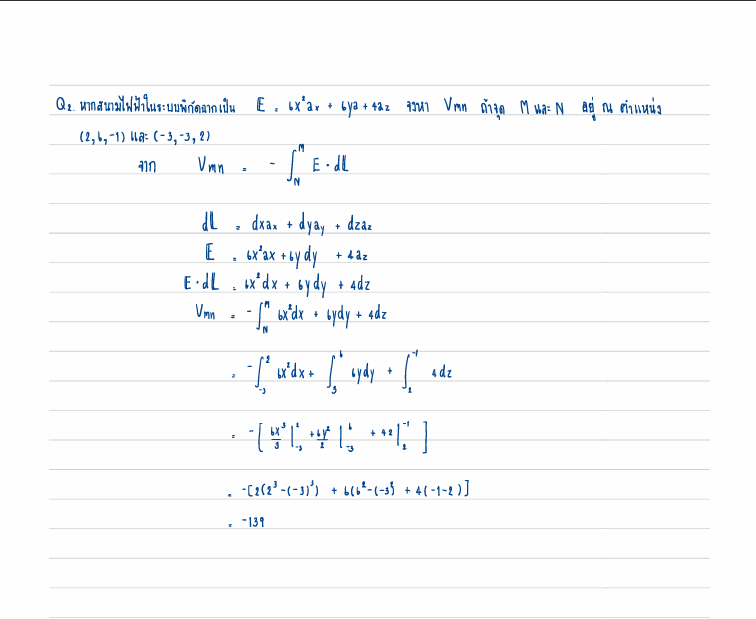 Q2. หากสนามไฟฟ้าในระบบพิกัดฉากเป็น E = 6x²ax + 6ya + 4az จงหา Vmn ถ้าจุด M และ N อยู่ ณ ตำแหน่ง
(2,6,-1) และ (-3,-3,2)
จาก Vmn = -∫_N^M E · dL
dL = dxax + dyay + dzaz
E = 6x²ax + 6ydy + 4az
E · dL = 6x²dx + 6ydy + 4dz
Vmn = -∫_N^M 6x²dx + 6ydy + 4dz
= -∫_-3^2 6x²dx + ∫_3^6 6ydy + ∫_2^-1 4dz
= -[ 6x³/3 |_-3^2 + 6y²/2 |_-3^6 + 4z |_2^-1 ]
= -[2(2³-(-3)³) + 6(6²-(-3)² + 4(-1-2)]
= -139